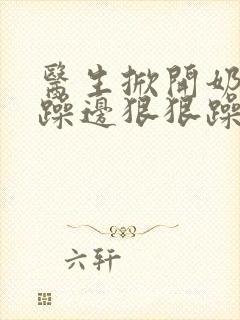 醫生掀開奶
躁邊狠狠躁
六轩